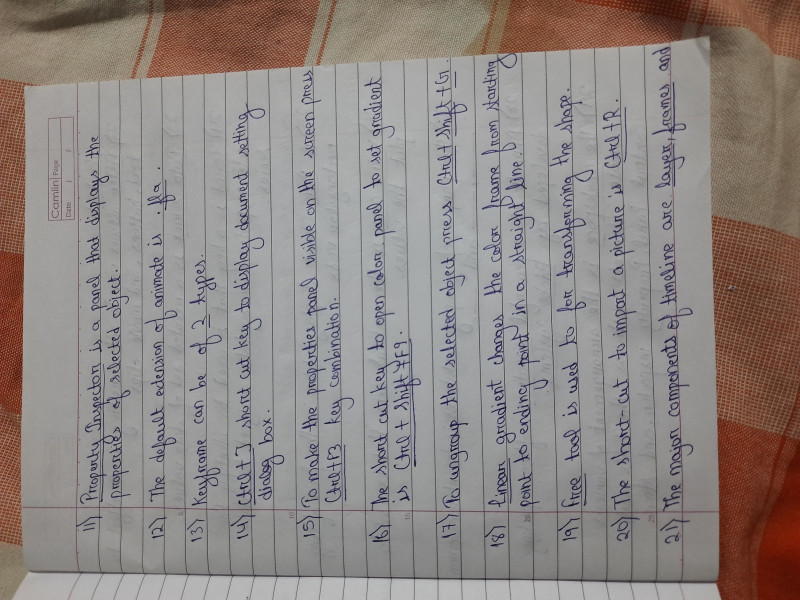 Camlin Page
Date / /
11) Property Inspector is a panel that displays the
properties of selected object.
12) The default extension of animate is .fla.
13) Keyframe can be of 2 types.
14) Ctrl+J short cut key to display document setting
dialog box.
15) To make the properties panel visible on the screen press
Ctrl+F3 key combination.
16) The short cut key to open color panel to set gradient
is Ctrl + Shift +F9.
17) To ungroup the selected object press Ctrl+ Shift +G.
18) linear gradient changes the color frame from starting
point to ending point in a straight line.
19) Free tool is used to for transforming the shape.
20) The short-cut to import a picture is Ctrl+R.
21) The major components of timeline are layer, frames and